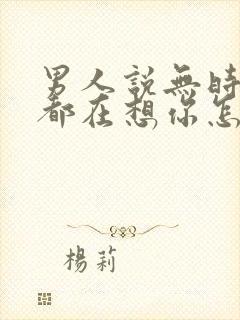 男人説無時
都在想你怎
楊莉